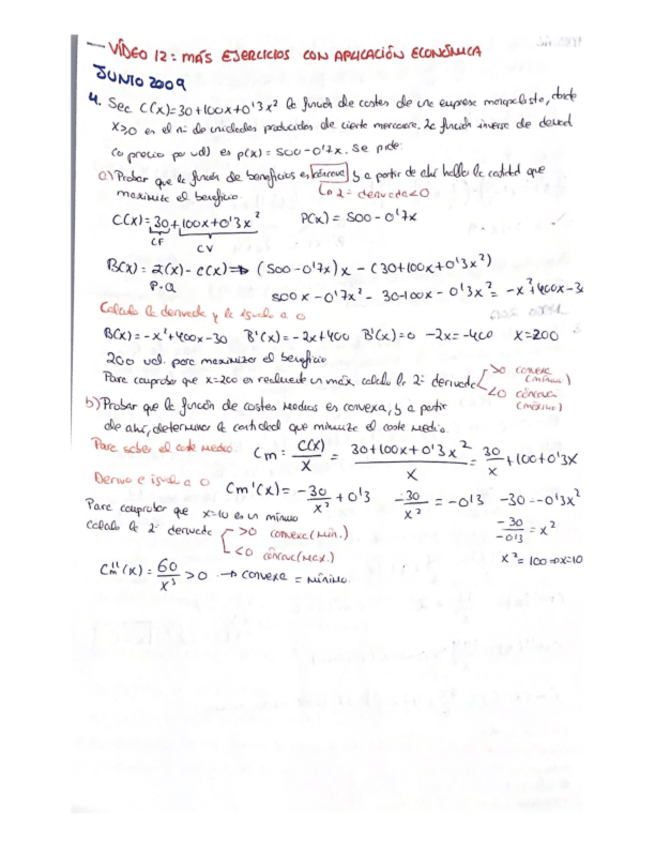 — VÍDEO 12: MÁS EJERCICIOS CON APLICACIÓN ECONÓMICA
JUNIO 2009
4. Sea C(x)=30+100x+0'3x² la función de costes de una empresa monopolista, donde
x>0 es el nº de unidades producidas de cierta mercancía, la función inversa de demand
(o precio por ud) es p(x) = 500-0'7x. Se pide:
a) Probar que la función de beneficios es cóncava y a partir de ahí halla la cantidad que
maximiza el beneficio.
↳ 2ª derivada<0
C(x)= 30+100x+0'3x²
P(x) = 500-0'7x
CF
CV
B(x) = I(x) - C(x) ⇒ (500-0'7x)x - (30+100x+0'3x²)
P·Q
500x - 0'7x² - 30-100x - 0'3x² = -x²+400x-30
Calculo la derivada y la igualo a 0
B(x) = -x²+400x-30 B'(x) = -2x+400 B'(x)=0 -2x=-400 x=200
200 ud. para maximizar el beneficio
Para comprobar que x=200 es realmente un máx, calculo la 2ª derivada
>0 convexa
(mínimo)
<0 cóncava
(máximo)
b) Probar que la función de costes medios es convexa, y a partir
de ahí, determinar la cantidad que minimiza el coste medio.
Para saber el coste medio: Cm = C(x)/x = 30+100x+0'3x²/x = 30/x +100+0'3x
Derivo e igualo a 0 Cm'(x) = -30/x² + 0'3 -30/x² = -0'3 -30 = -0'3x²
-30/-0'3 = x²
x² = 100 ⇒ x=10
Para comprobar que x=10 es un mínimo
calculo la 2ª derivada
>0 convexa (mín.)
<0 cóncava (máx.)
Cm''(x) = 60/x³ >0 → convexa = mínimo.